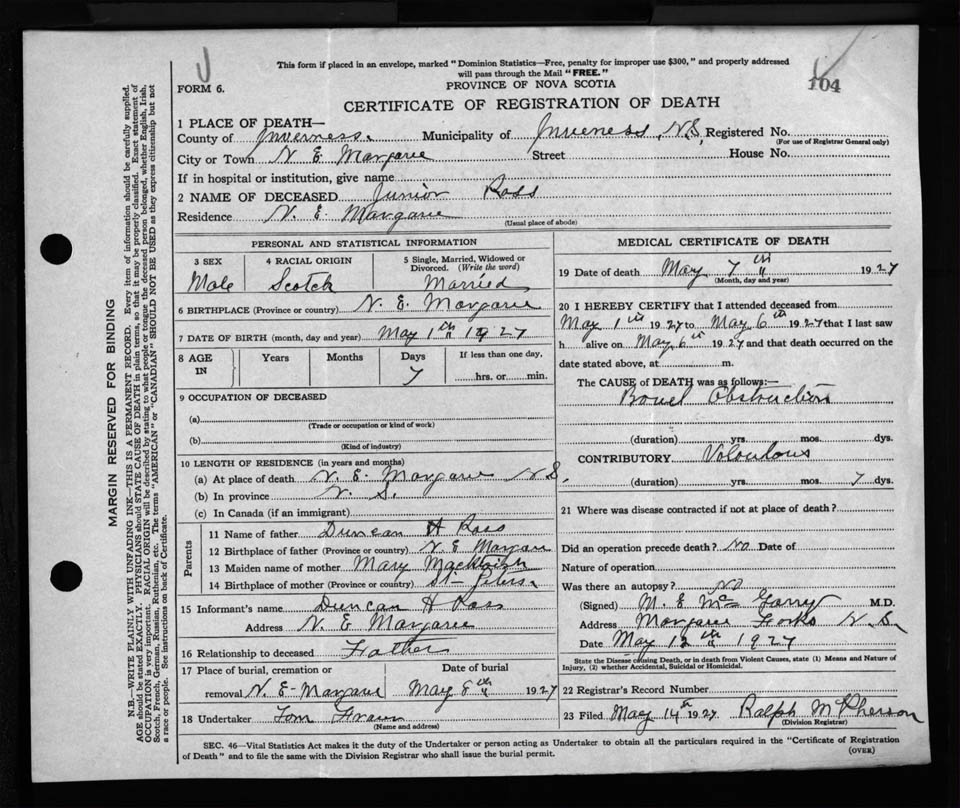 J
This form if placed in an envelope, marked "Dominion Statistics—Free, penalty for improper use $300," and properly addressed
will pass through the Mail "FREE."
104
FORM 6.
PROVINCE OF NOVA SCOTIA
CERTIFICATE OF REGISTRATION OF DEATH
1 PLACE OF DEATH—
County of Inverness. Municipality of Inverness, N.S. Registered No.
(For use of Registrar General only)
City or Town N E Margaree Street House No.
If in hospital or institution, give name
2 NAME OF DECEASED Junior Ross
Residence N. E. Margaree
(Usual place of abode)
PERSONAL AND STATISTICAL INFORMATION
3 SEX 4 RACIAL ORIGIN 5 Single, Married, Widowed or
Divorced. (Write the word)
Male Scotch Married
6 BIRTHPLACE (Province or country) N. E. Margaree
7 DATE OF BIRTH (month, day and year) May 1th 1927
8 AGE IN Years Months Days If less than one day,
7 hrs. or min.
9 OCCUPATION OF DECEASED
(a)
(Trade or occupation or kind of work)
(b)
(Kind of industry)
10 LENGTH OF RESIDENCE (in years and months)
(a) At place of death N. E. Margaree N S
(b) In province N. S.
(c) In Canada (if an immigrant)
Parents
11 Name of father Duncan H Ross
12 Birthplace of father (Province or country) N E Margaree
13 Maiden name of mother Mary
14 Birthplace of mother (Province or country) St Peters
15 Informant's name Duncan H Ross
Address N E Margaree
16 Relationship to deceased Father
17 Place of burial, cremation or Date of burial
removal N. E- Margaree May 8th 1927
18 Undertaker Tom
(Name and address)
MEDICAL CERTIFICATE OF DEATH
19 Date of death May 7th 1927
(Month, day and year)
20 I HEREBY CERTIFY that I attended deceased from
May 1th 1927 to May 6th 1927 that I last saw
h alive on May 6th 1927 and that death occurred on the
date stated above, at m.
The CAUSE of DEATH was as follows:—
Bowel Obstruction
(duration) yrs. mos. dys.
CONTRIBUTORY Volvulous
(duration) yrs. mos. 7 dys.
21 Where was disease contracted if not at place of death?
Did an operation precede death? No Date of
Nature of operation
Was there an autopsy? No
(Signed) M. E McGarry M.D.
Address Margaree Forks N.S.
Date May 12th 1927
State the Disease causing Death, or in death from Violent Causes, state (1) Means and Nature of
Injury, (2) whether Accidental, Suicidal or Homicidal.
22 Registrar's Record Number
23 Filed May 14th 1927 Ralph McPherson
(Division Registrar)
SEC. 46—Vital Statistics Act makes it the duty of the Undertaker or person acting as Undertaker to obtain all the particulars required in the "Certificate of Registration
of Death" and to file the same with the Division Registrar who shall issue the burial permit.
(OVER)
MARGIN RESERVED FOR BINDING
N.B.—WRITE PLAINLY WITH UNFADING INK—THIS IS A PERMANENT RECORD. Every item of information should be carefully supplied.
AGE should be stated EXACTLY. PHYSICIANS should STATE CAUSE OF DEATH in plain terms, so that it may be properly classified. Exact statement of
OCCUPATION is very important. RACIAL ORIGIN will be described by stating to what people or tongue the deceased person belonged, whether English, Irish,
Scotch, French, German, Russian, Ruthenian, etc. The terms "AMERICAN" or "CANADIAN" SHOULD NOT BE USED as they express citizenship but not
a race or people. See instructions on back of Certificate.